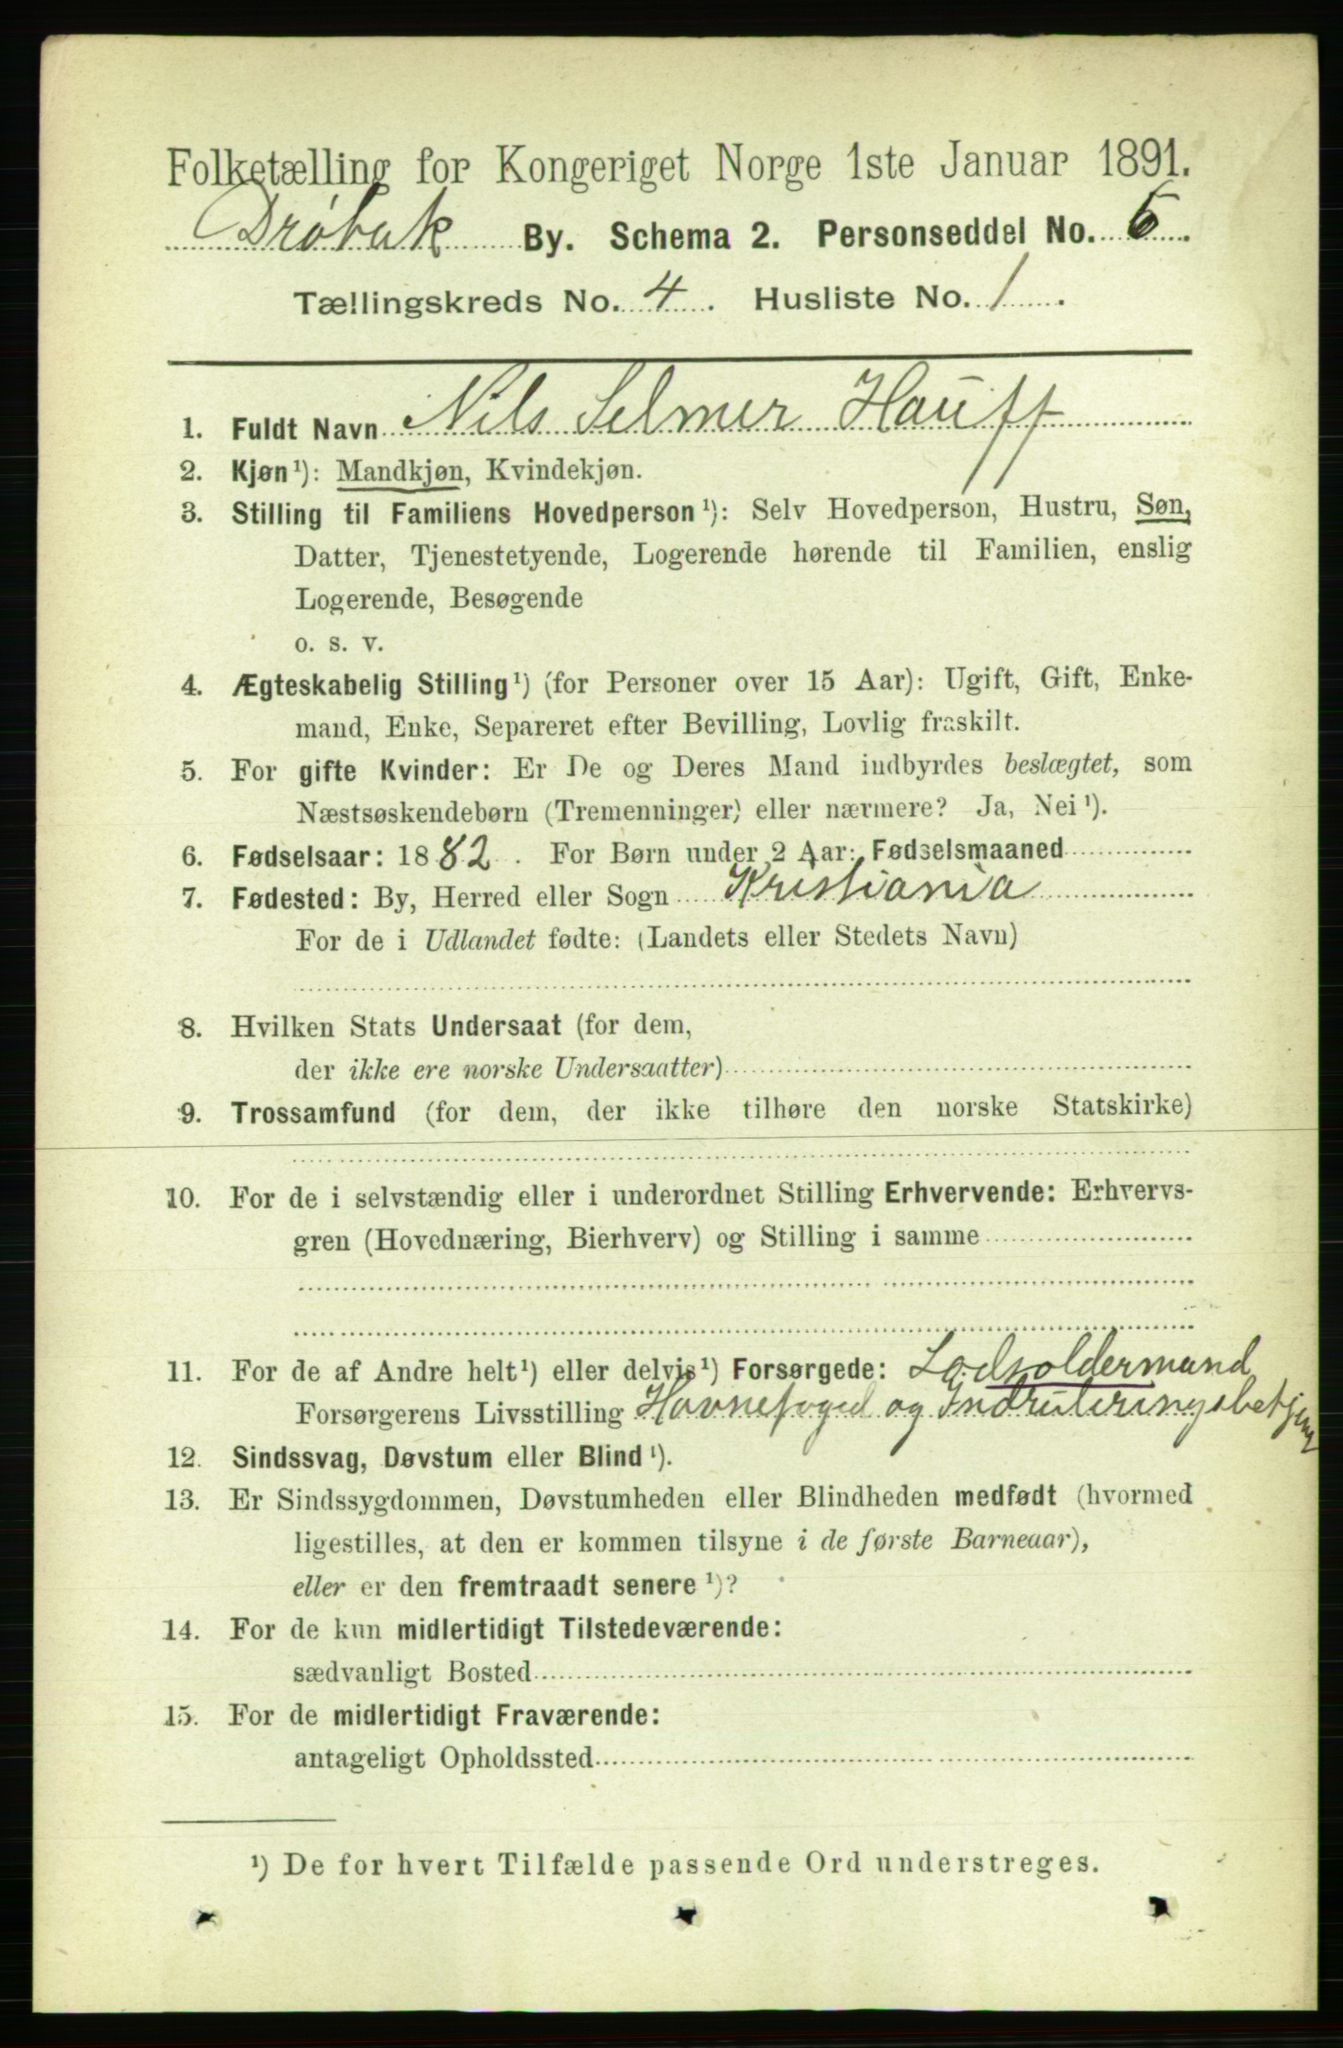 Folketælling for Kongeriget Norge 1ste Januar 1891.
Drøbak By. Schema 2. Personseddel No. 6.
Tællingskreds No. 4. Husliste No. 1.
1. Fuldt Navn Nils Selmer Hauff
2. Kjøn¹): Mandkjøn, Kvindekjøn.
3. Stilling til Familiens Hovedperson¹): Selv Hovedperson, Hustru, Søn,
Datter, Tjenestetyende, Logerende hørende til Familien, enslig
Logerende, Besøgende
o. s. v.
4. Ægteskabelig Stilling¹) (for Personer over 15 Aar): Ugift, Gift, Enke-
mand, Enke, Separeret efter Bevilling, Lovlig fraskilt.
5. For gifte Kvinder: Er De og Deres Mand indbyrdes beslægtet, som
Næstsøskendebørn (Tremenninger) eller nærmere? Ja, Nei¹).
6. Fødselsaar: 1882. For Børn under 2 Aar: Fødselsmaaned
7. Fødested: By, Herred eller Sogn Kristiania
For de i Udlandet fødte: (Landets eller Stedets Navn)
8. Hvilken Stats Undersaat (for dem,
der ikke ere norske Undersaatter)
9. Trossamfund (for dem, der ikke tilhøre den norske Statskirke)
10. For de i selvstændig eller i underordnet Stilling Erhvervende: Erhvervs-
gren (Hovednæring, Bierhverv) og Stilling i samme
11. For de af Andre helt¹) eller delvis¹) Forsørgede: Lodsoldermand
Forsørgerens Livsstilling Havnefoged og Indruleringsbetjent
12. Sindssvag, Døvstum eller Blind¹).
13. Er Sindssygdommen, Døvstumheden eller Blindheden medfødt (hvormed
ligestilles, at den er kommen tilsyne i de første Barneaar),
eller er den fremtraadt senere¹)?
14. For de kun midlertidigt Tilstedeværende:
sædvanligt Bosted
15. For de midlertidigt Fraværende:
antageligt Opholdssted
¹) De for hvert Tilfælde passende Ord understreges.